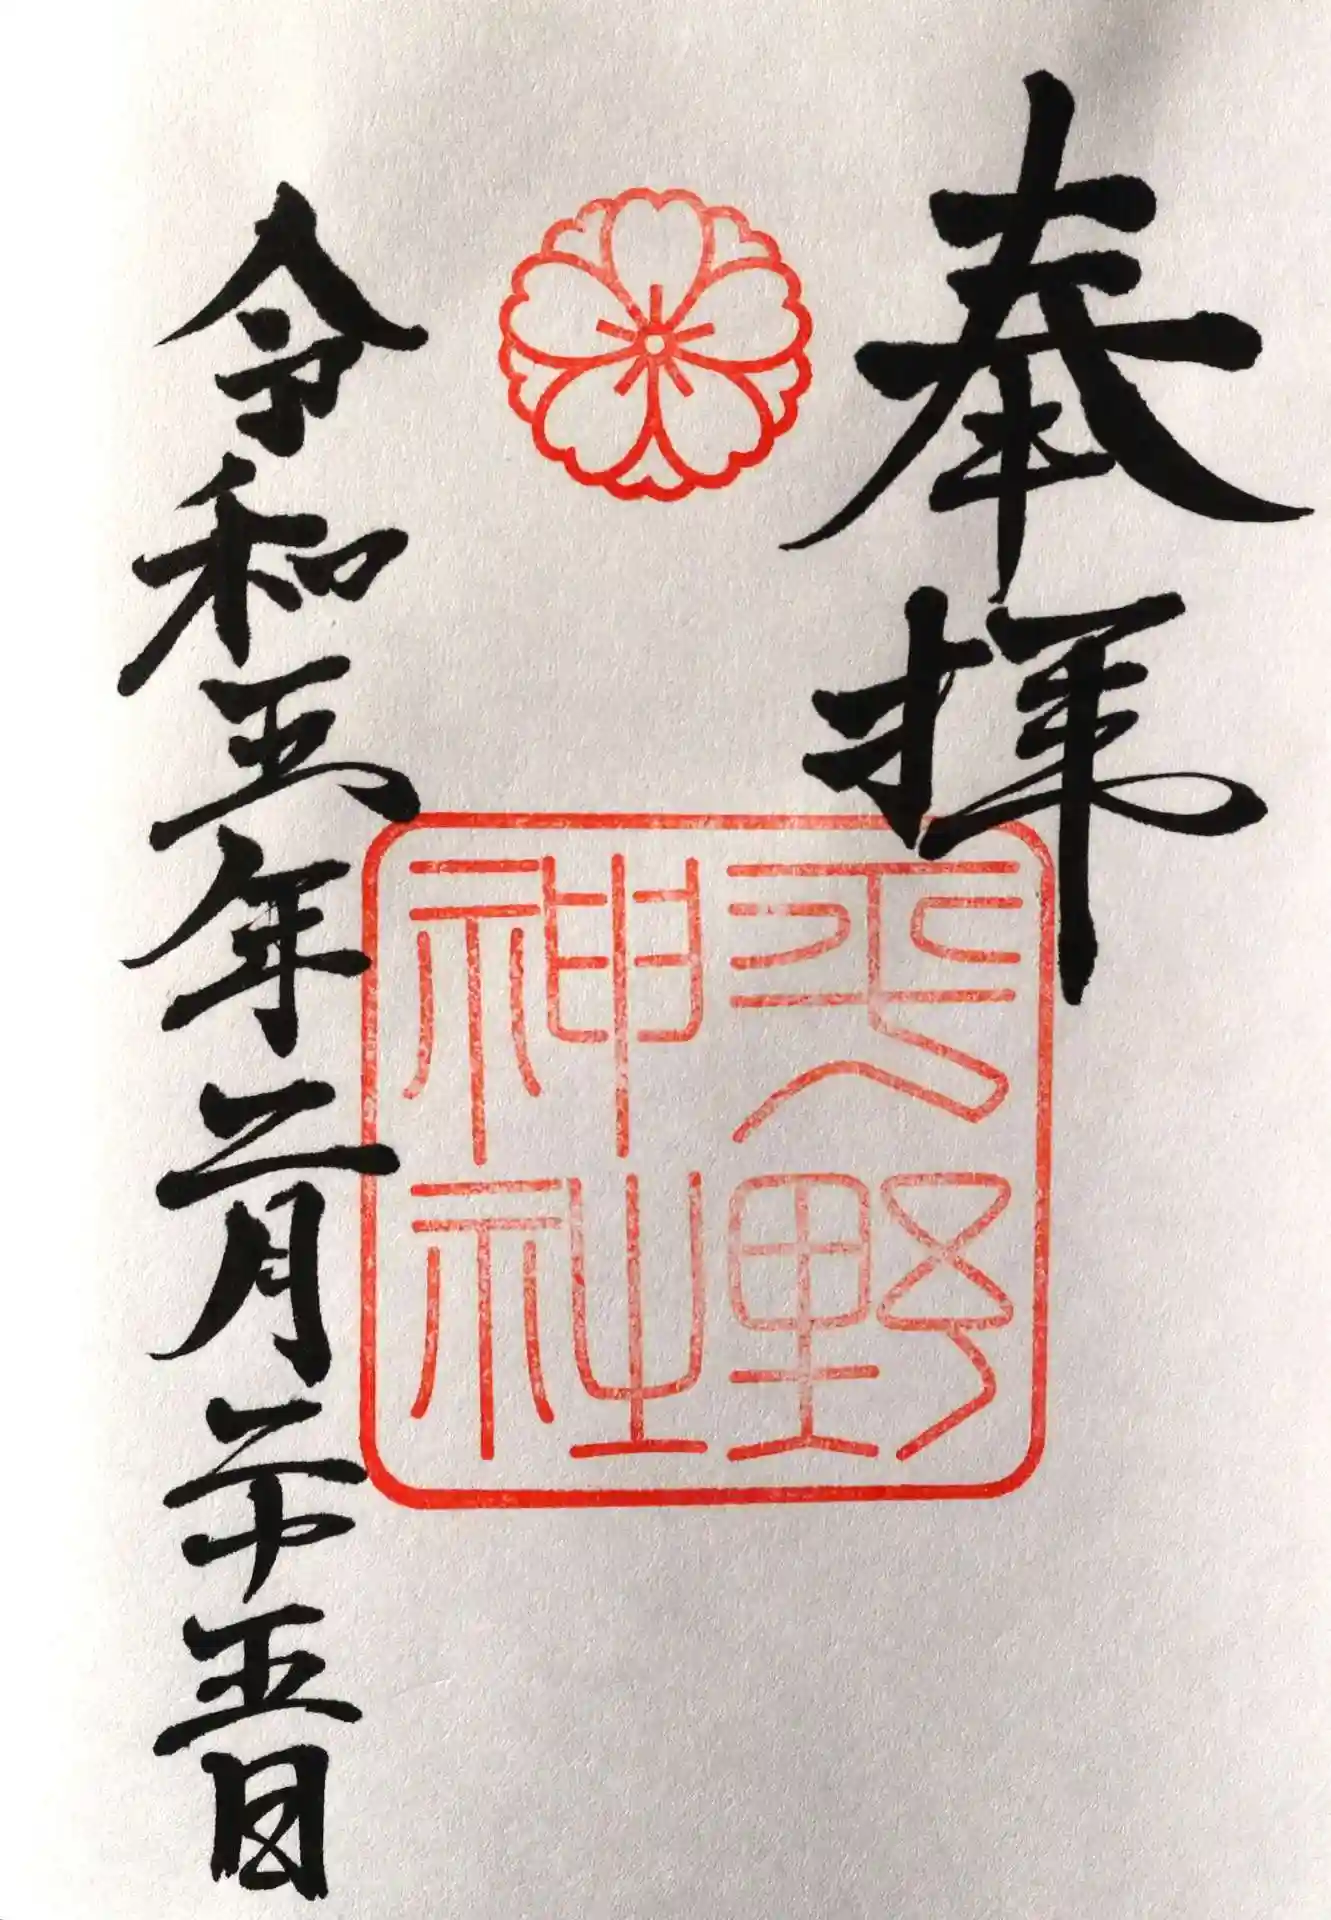 奉拝
平野
神社
令和五年二月二十五日